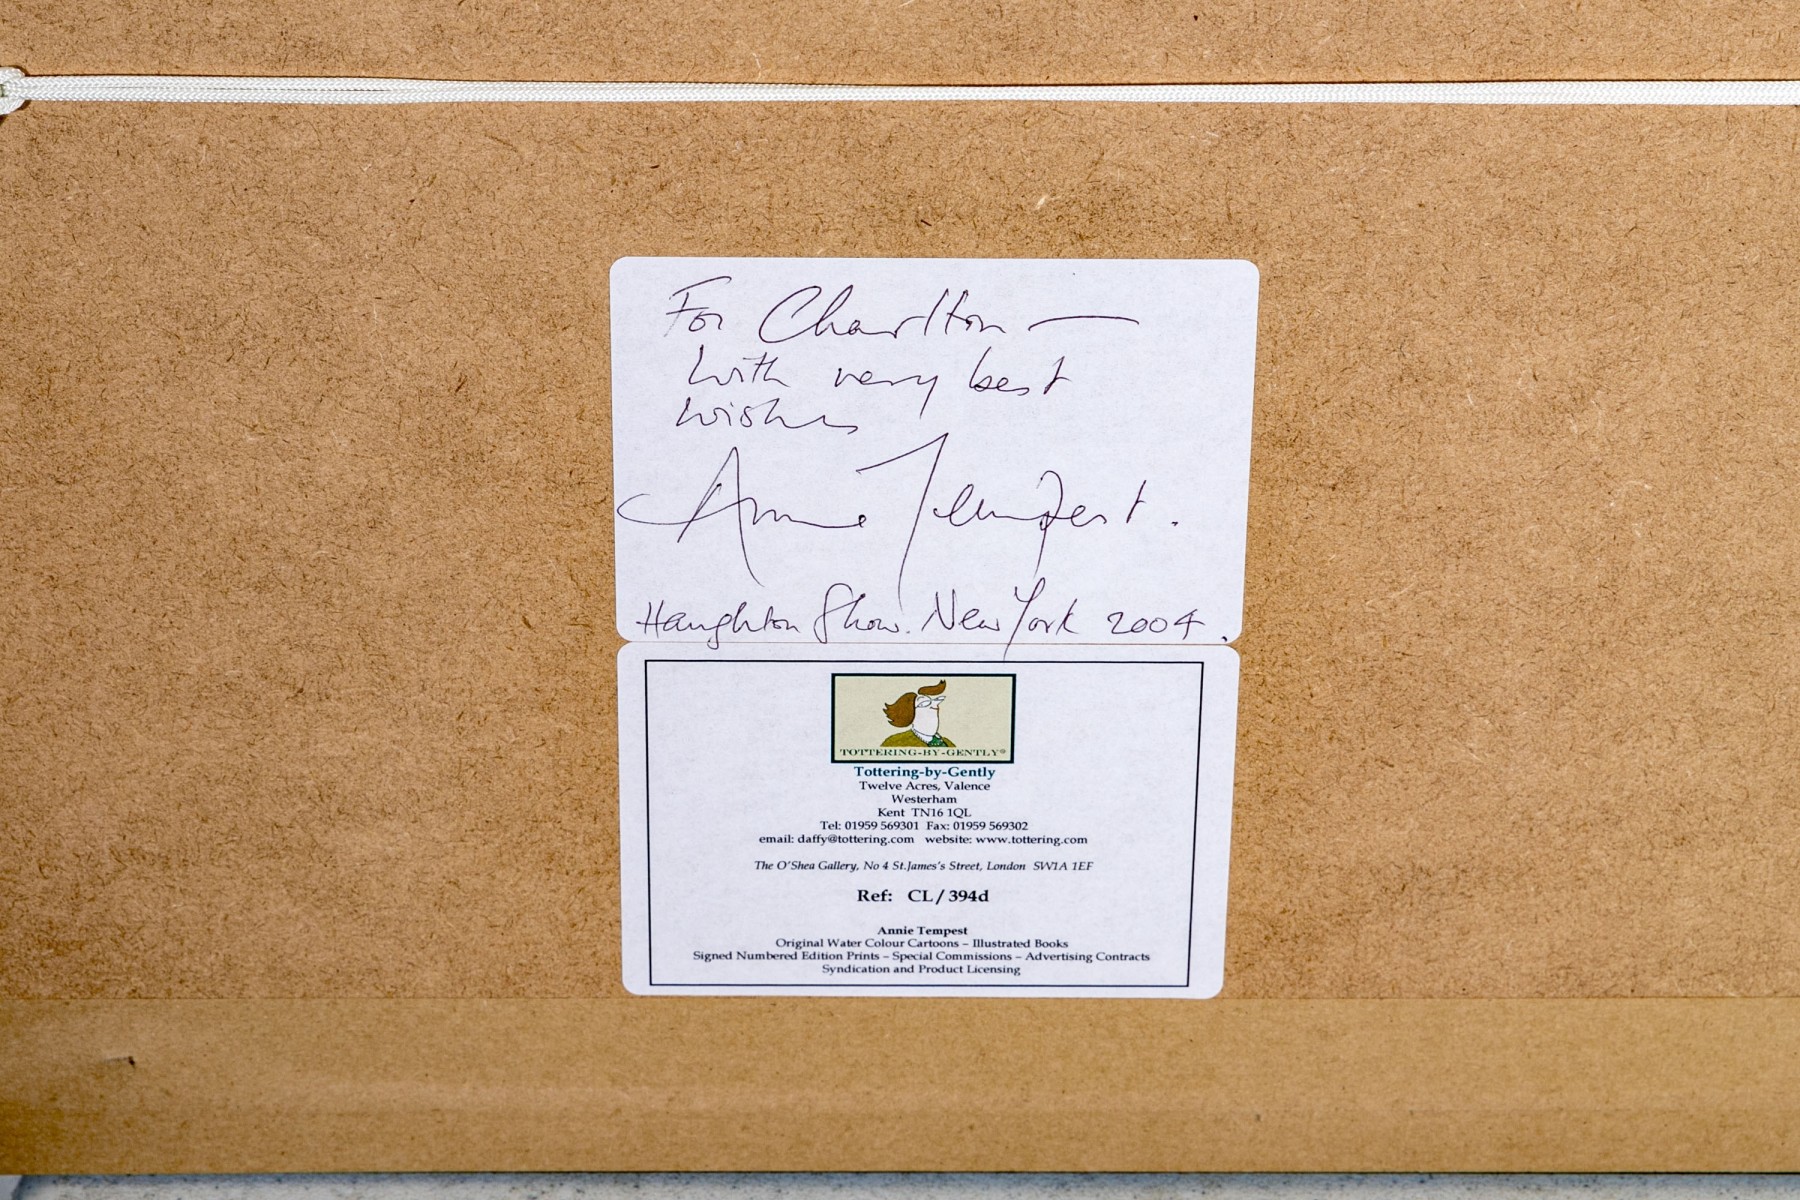 For Charlton —
with very best
wishes
Annie Tempest.
Haughton Show. New York 2004.
TOTTERING-BY-GENTLY®
Tottering-by-Gently
Twelve Acres, Valence
Westerham
Kent TN16 1QL
Tel: 01959 569301 Fax: 01959 569302
email: daffy@tottering.com website: www.tottering.com
The O'Shea Gallery, No 4 St.James's Street, London SW1A 1EF
Ref: CL/394d
Annie Tempest
Original Water Colour Cartoons – Illustrated Books
Signed Numbered Edition Prints – Special Commissions – Advertising Contracts
Syndication and Product Licensing